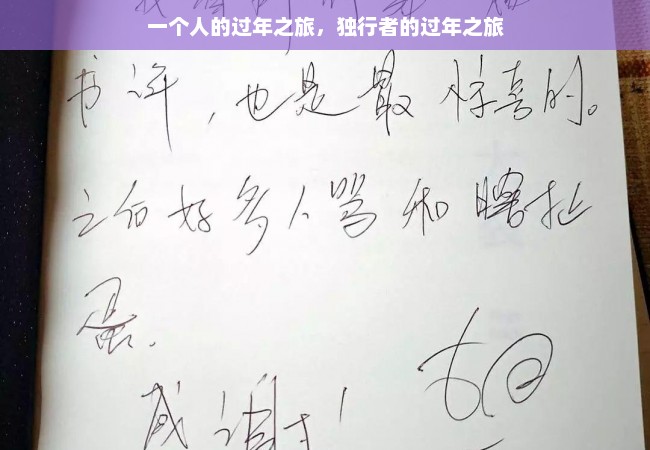 一个人的过年之旅，独行者的过年之旅
书评，也是最惊喜的。
之前好多人骂和瞎扯
蛋.
感谢！